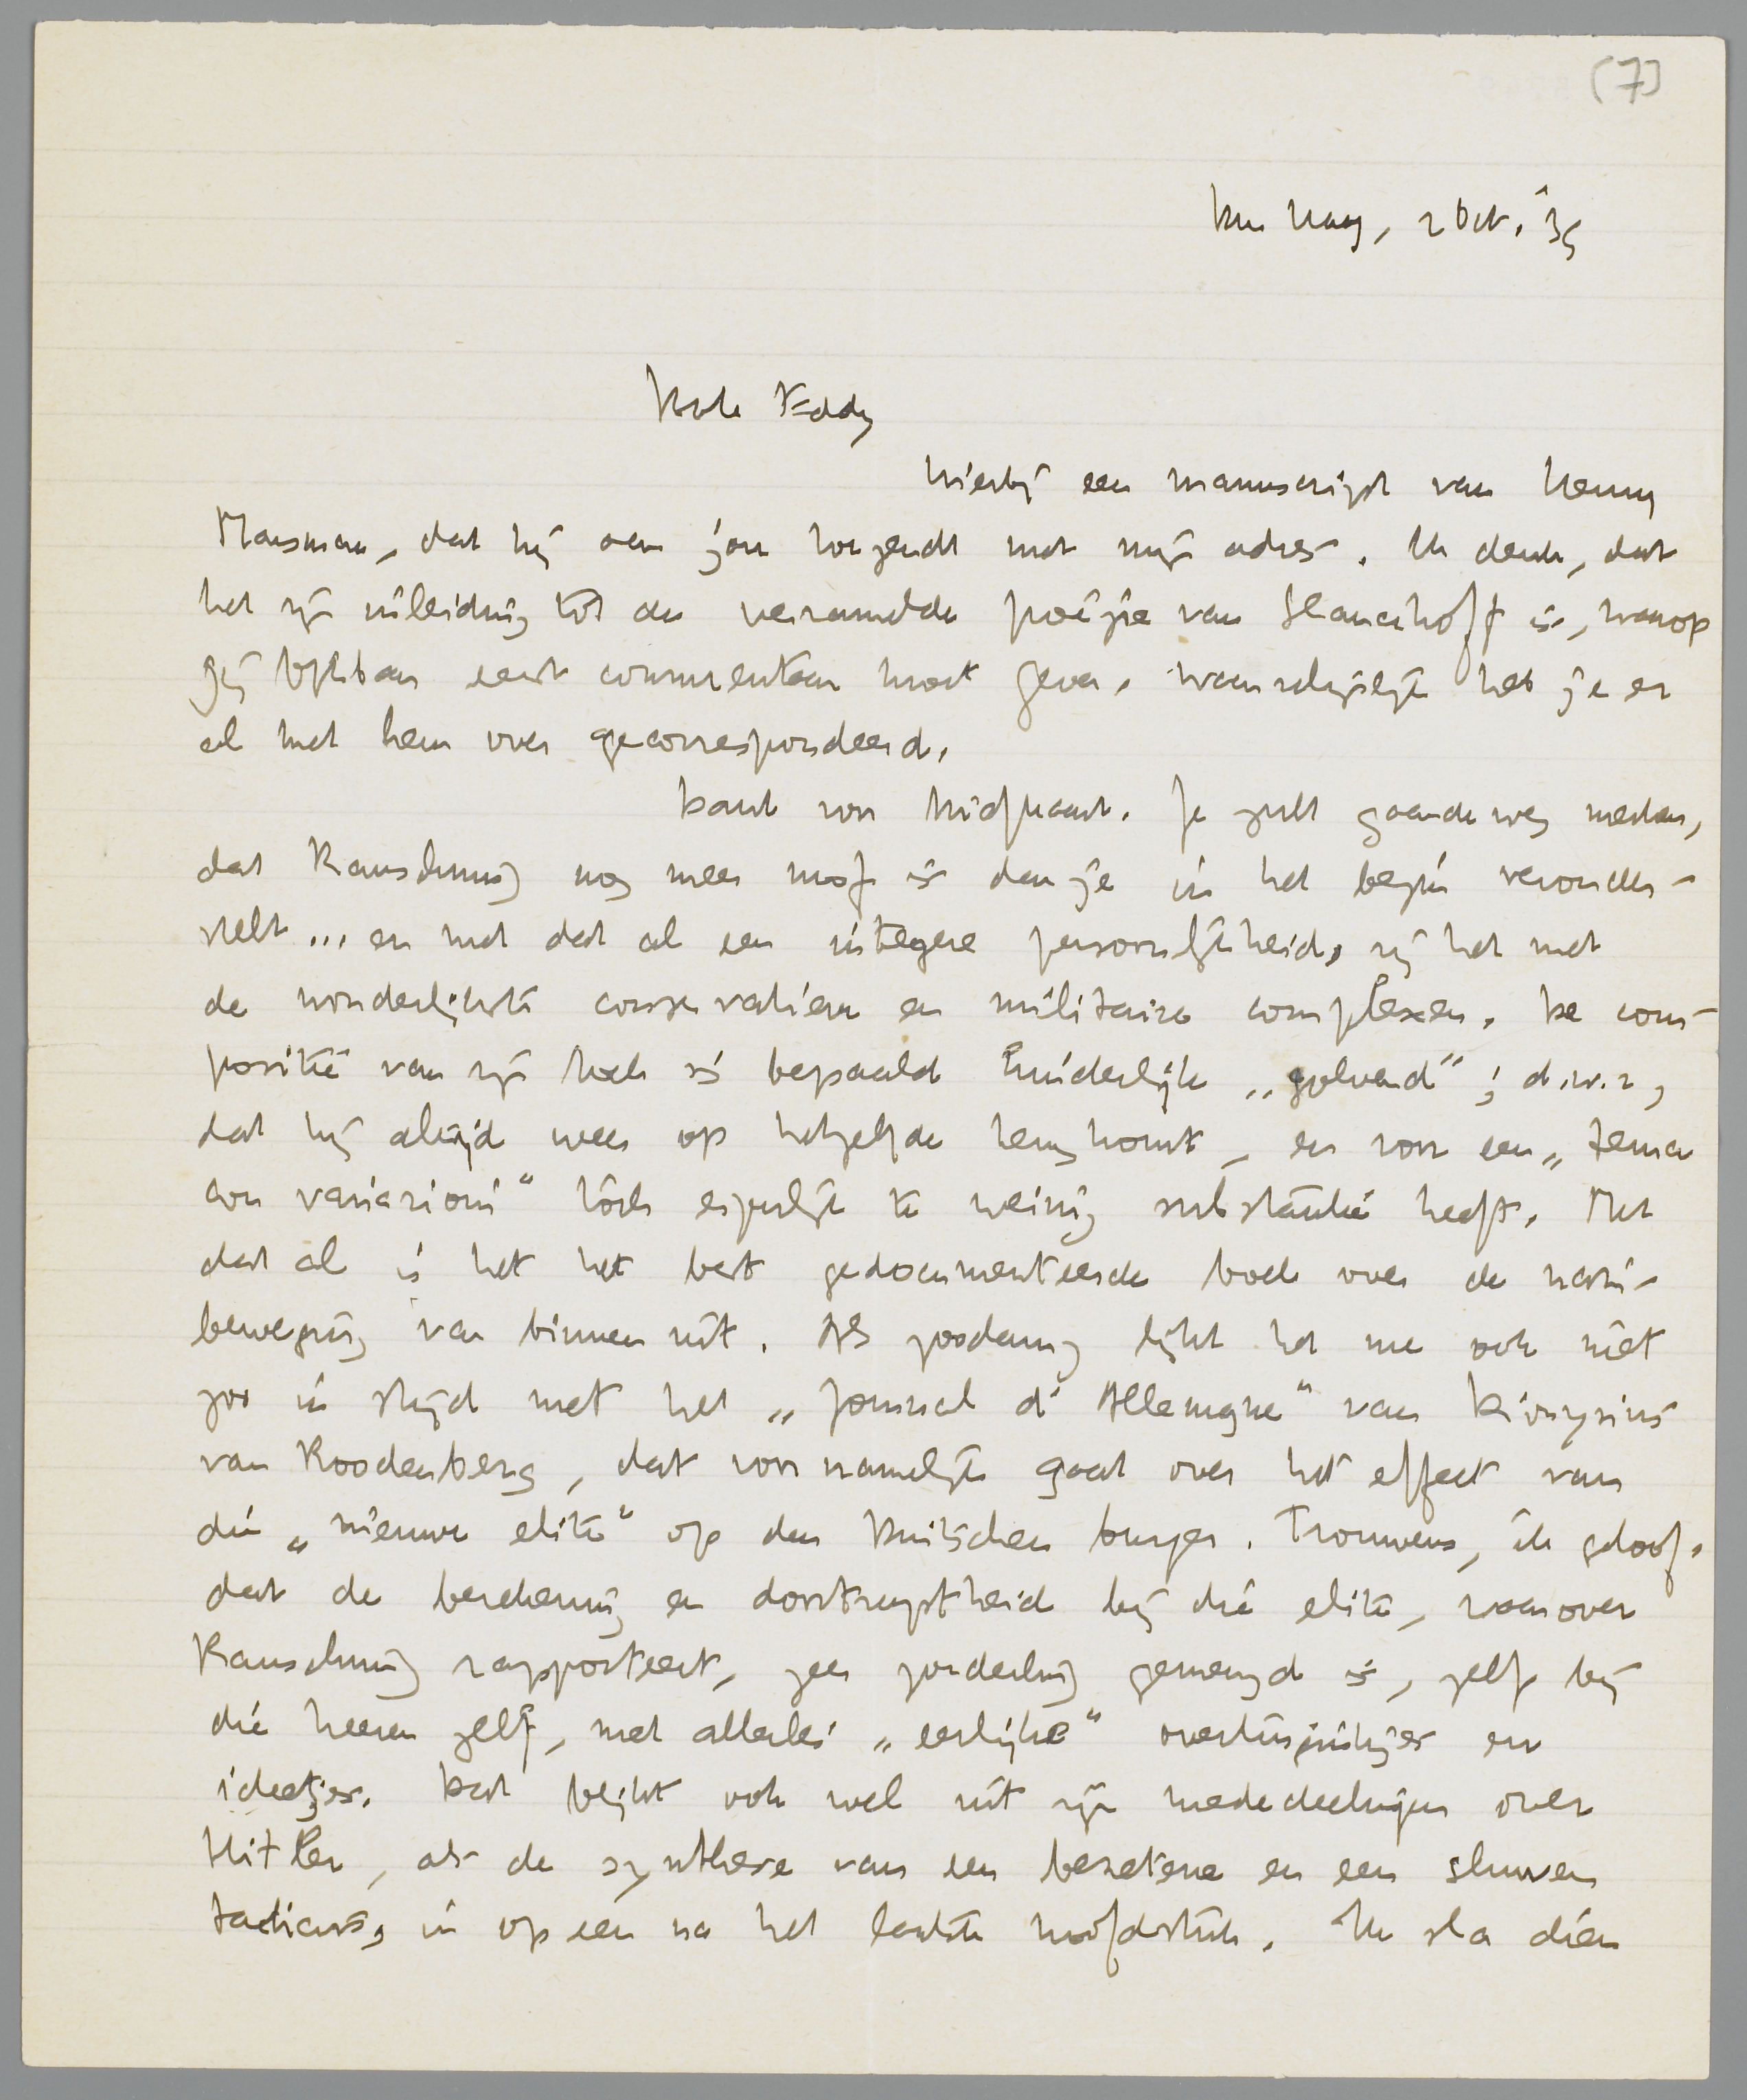 [7]
Den Haag, 2 Oct. '39
Beste Eddy
Hierbij een manuscript van Henny
Marsman, dat hij aan jou toezendt met mijn adres. Ik denk, dat
het zijn inleiding tot de verzamelde poëzie van Slauerhoff is, waarop
jij blijkbaar eerst commentaar moet geven. Waarschijnlijk heb je er
al met hem over gecorrespondeerd.
Dank voor briefkaart. Je zult gaandeweg merken,
dat Rauschning nog meer mof is dan je in het begin veronder-
stelt... en met dat al een integere persoonlijkheid, zij het met
de wonderlijkste conservatieve en militaire complexen. De com-
positie van zijn boek is bepaald hinderlijk „golvend"; d.w.z,
dat hij altijd weer op hetzelfde terugkomt, en voor een „tema
con variazioni" toch eigenlijk te weinig substantie heeft. Met
dat al is het het best gedocumenteerde boek over de nazi-
beweging van binnen uit. Als zoodanig lijkt het me ook niet
zoo in strijd met het „Journal d'Allemagne" van Dionysius
van Roodenberg, dat voornamelijk gaat over het effect van
die „nieuwe elite" op den Duitschen burger. Trouwens, ik geloof,
dat de berekening en doortraptheid bij die elite, waarover
Rauschning rapporteert, zeer zonderling gemengd is, zelfs bij
die heeren zelf, met allerlei „eerlijke" overtuiginkjes en
ideetjes. Dat blijkt ook wel uit zijn mededeelingen over
Hitler, als de synthese van een bezetene en een sluwen
tacticus, in op een na het laatste hoofdstuk. Ik sla dien